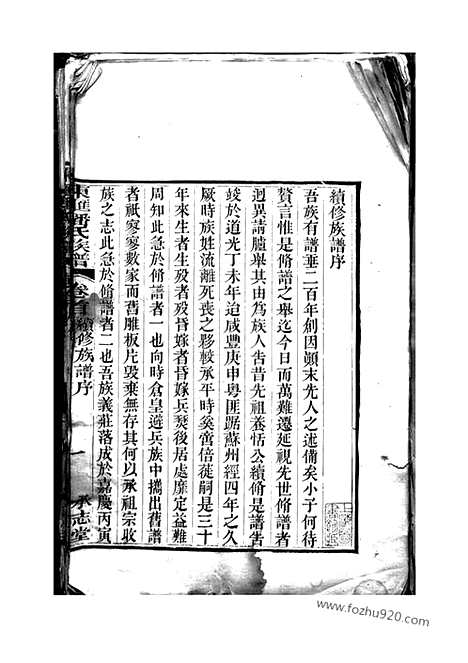 續修族譜序
吾族有譜垂二百年創因顚末先人之述備矣小子何待
贅言惟是脩譜之舉迄今日而萬難遷延視先世脩譜者
迥異請臚舉其由為族人告昔先祖養恬公續脩是譜告
竣於道光丁未年迨咸豐庚申粤匪踞蘇州經四年之久
厥時族姓流離死喪之夥較承平時奚啻倍徙嗣是三十
年來生者生殁者殁昏者昏嫁者嫁兵燹後居處靡定益難
周知此急於脩譜者一也向時倉皇避兵族中攜出舊譜
者祇寥寥數家而舊雕板片毁棄無存其何以承祖宗收
族之志此急於脩譜者二也吾族義莊落成於嘉慶丙寅
東匯潘氏族譜
卷首
續修族譜序
一
承志堂
www.fozhu920.com